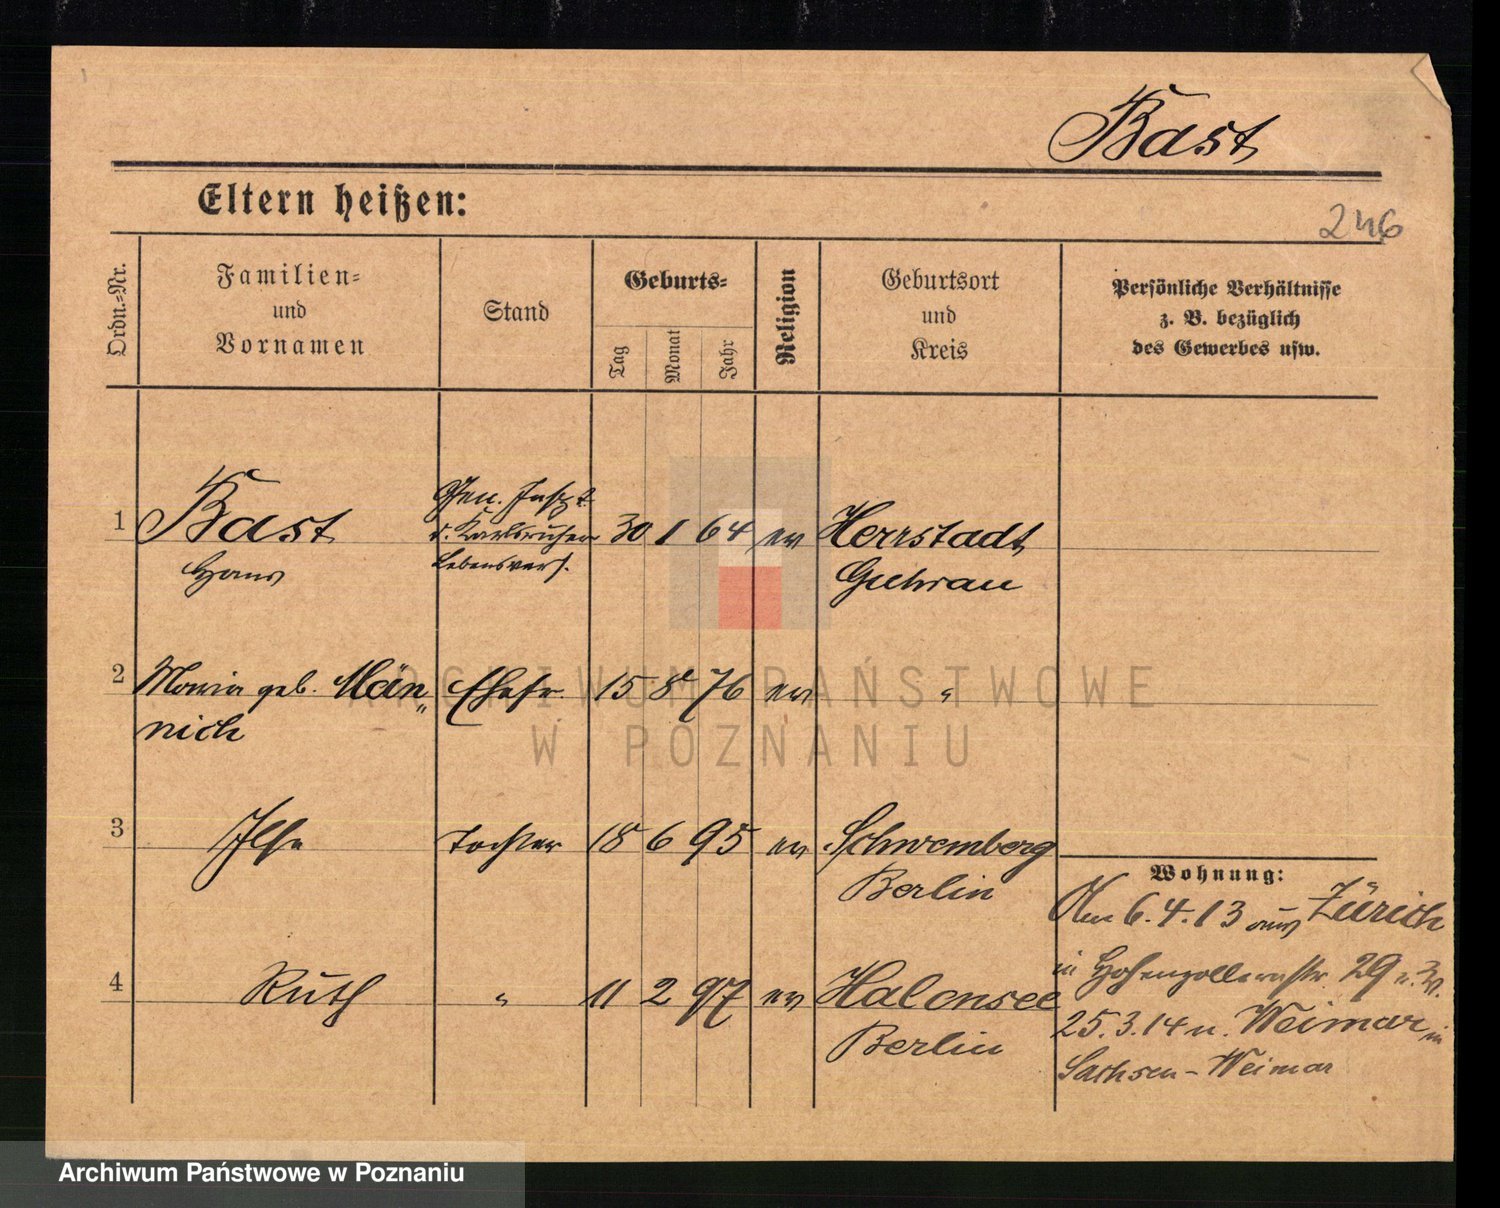 Bast
Eltern heißen:
246
Ordn.=Nr.
Familien=
und
Vornamen
Stand
Geburts=
Tag
Monat
Jahr
Religion
Geburtsort
und
Kreis
Persönliche Verhältnisse
z. B. bezüglich
des Gewerbes usw.
1
Bast
Hans
Gen. Inspt.
d. Karlsruher
Lebensvers.
30 1 64 ev
Herrstadt
Guhrau
2
Maria geb. Män„
nich
Ehefr. 15 8 76 ev "
3
Ilse
Tochter 18 6 95 ev
Schwemberg
Berlin
4
Ruth
" 11 2 97 ev
Halensee
Berlin
Wohnung:
Am 6.4.13 aus Zürich
in Hohenzollernstr. 29 u. W.
25.3.14 n. Weimar in
Sachsen-Weimar
ARCHIWUM PAŃSTWOWE
W POZNANIU
Archiwum Państwowe w Poznaniu